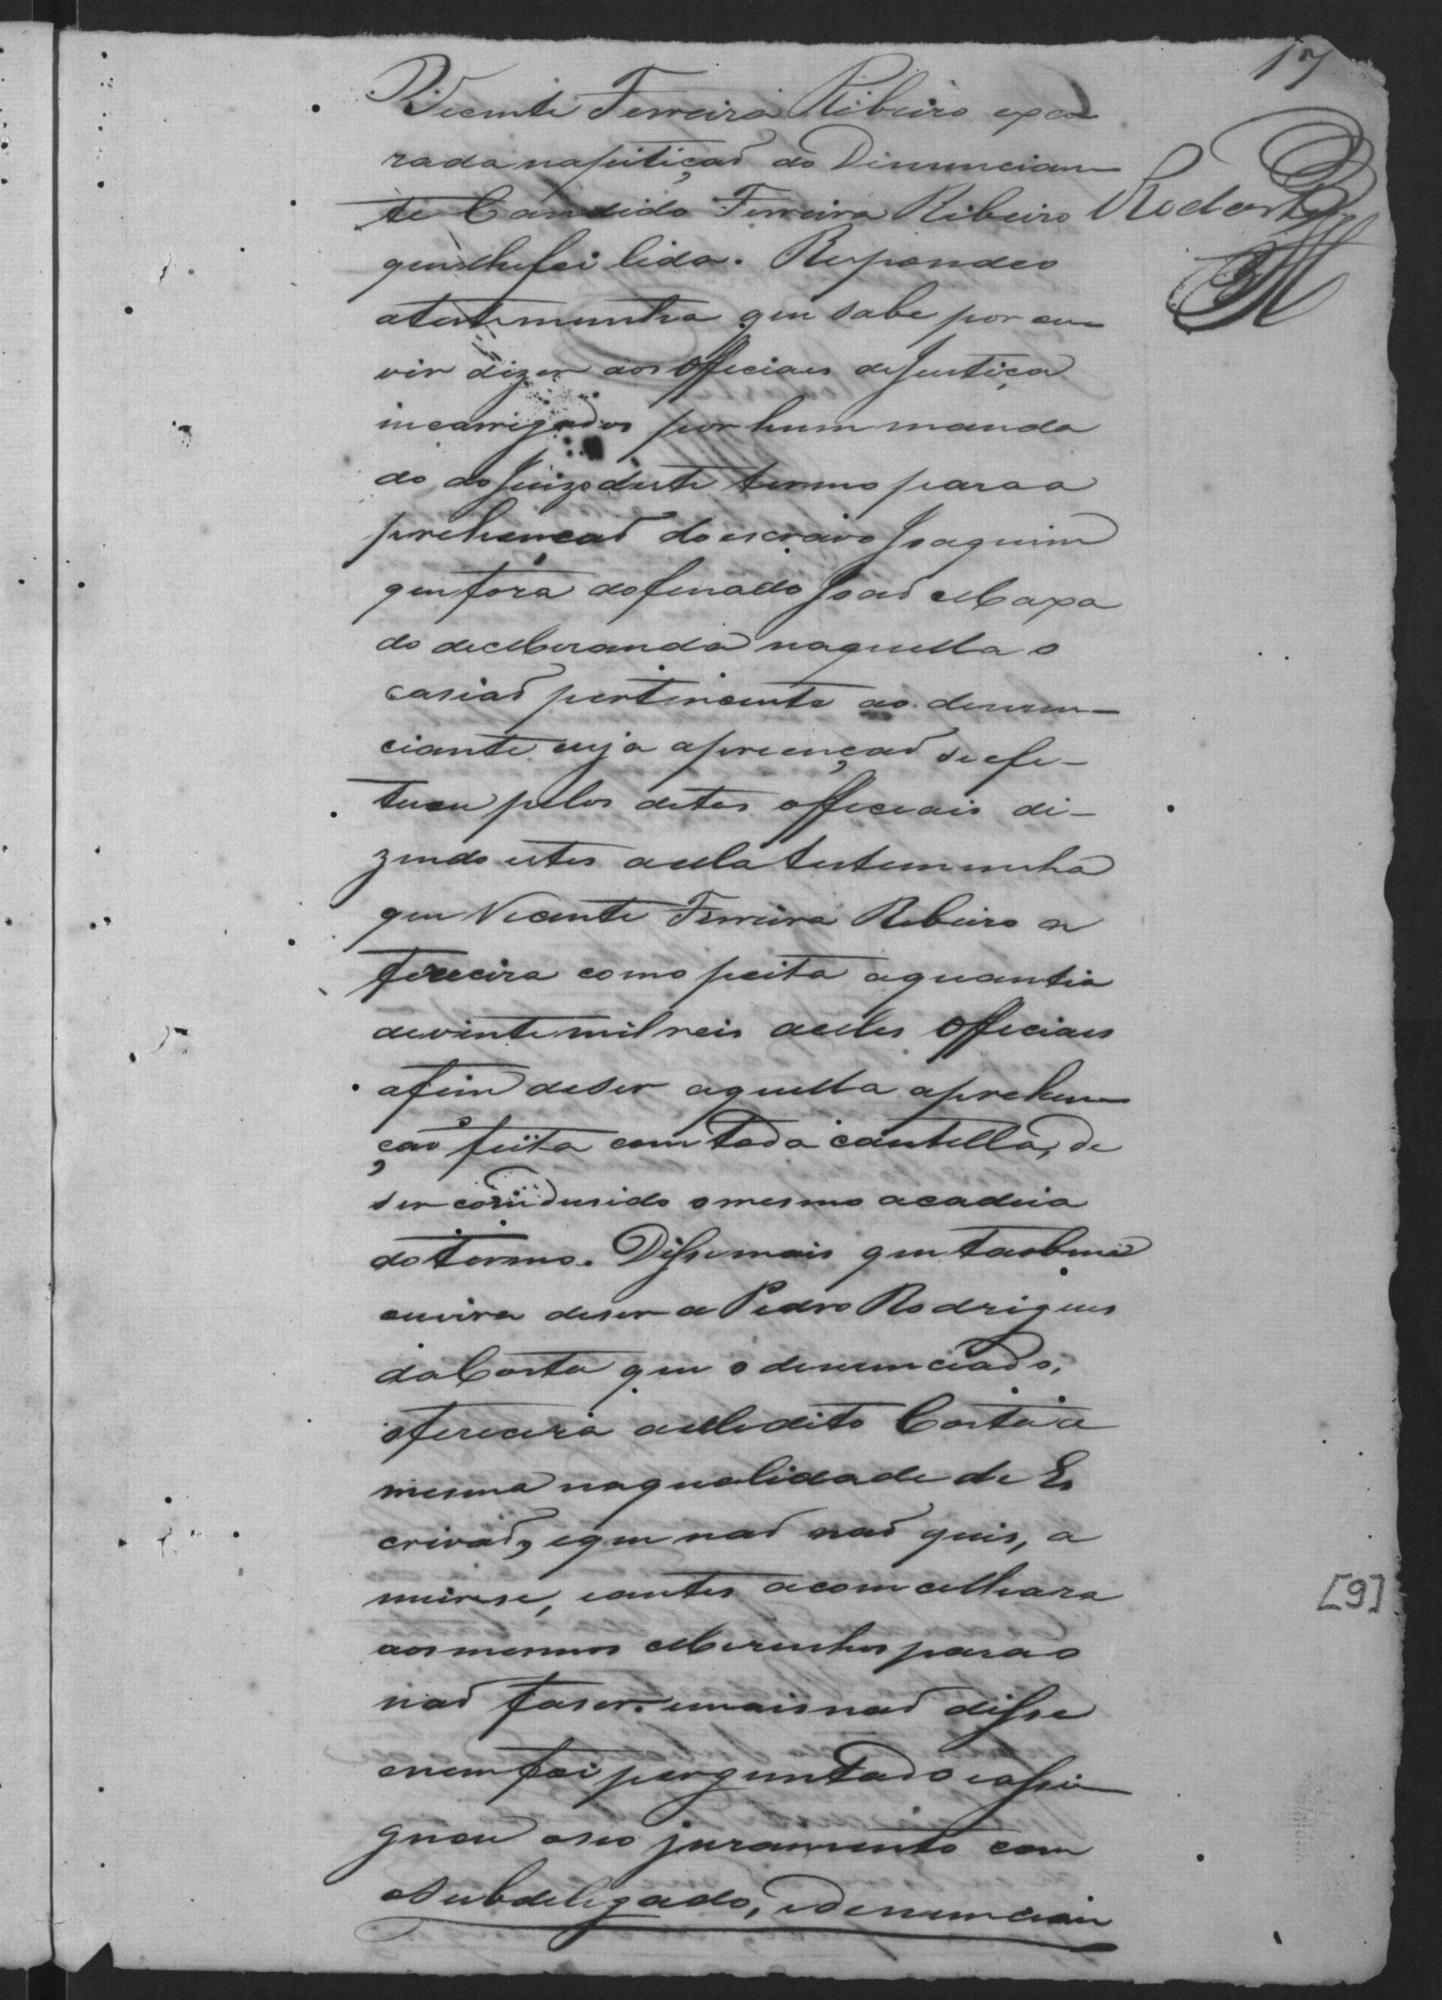 17
Vicente Ferreira Ribeiro expa
rada na pitiçaõ do Dinuncian
te Candido Ferreira Ribeiro
que lhe foi lida. Respondeo
a testemunha que sabe por ou
vir dizer aos officiaes de Justiça
incarrigados por hum manda
do do Juizo deste termo para a
prehençaõ do escravo Joaquim
que fora do finado Joaõ Maxa
do de Meranda naquella o
casiaõ pertincente ao denun
ciante cuja aprençaõ se efe-
tuou pelos ditos officiais di-
zendo estes a ella testemunha
que Vicente Ferreira Ribeiro o
fereceira como peita a quantia
de vinte mil reis a elles officiaes
afim de ser aquella aprehen
çaõ feita com toda cautella, de
ser condusido o mesmo a cadeia
do termo. Disse mais que taobem
ouvira deser a Pedro Rodrigues
da Costa que o denunciado,
oferecera a elle dito Costa a
mesma na qualidade de Es
crivaõ, e que naõ naõ quis, a
nuirse, e antes acomcelhara
aos mesmos Meirinhos para o
naõ faser. e mais naõ disse
e nem foi perguntado e assi
gnou o seo juramento com
o Subdelegado, e denuncian
[9]